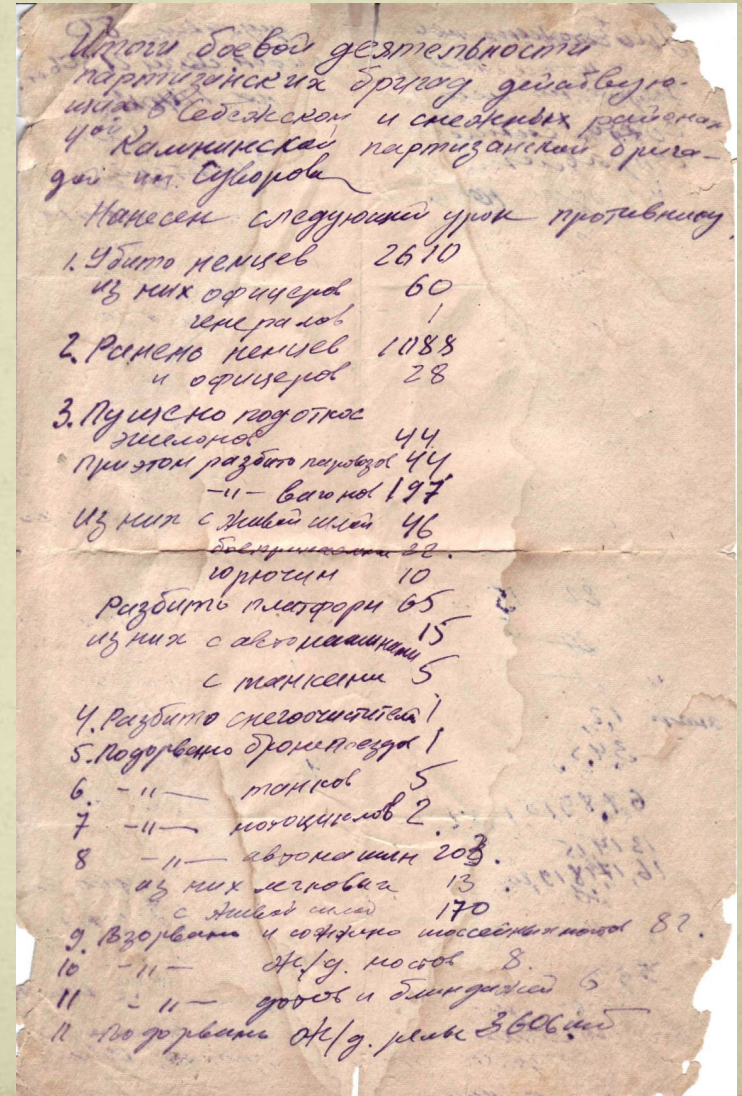 Итоги боевой деятельности
партизанских бригад действую-
щих в Себежском и смежных районах
4ой Калининской партизанской брига-
дой им. Суворова
Нанесен следующий урон противнику
1. Убито немцев 2610
из них офицеров 60
генералов 1
2. Ранено немцев 1088
и офицеров 28
3. Пущено подоткос
эшелонов 44
При этом разбито паровозов 44
-"- вагонов 197
Из них с живой силой 46
боеприпасами 22.
горючим 10
Разбито платформ 65
из них с автомашинами 15
с танками 5
4. Разбито снегоочистителей 1
5. Подорвано бронепоездов 1
6. -"- танков 5
7 -"- мотоциклов 2.
8 -"- автомашин 203.
из них легковых 13
с живой силой 170
9. Взорвано и сожжено шоссейных мостов 82.
10 -"- ж/д. мостов 8.
11 -"- дотов и блиндажей 6
11 Подорвано ж/д. рельс 3606 шт